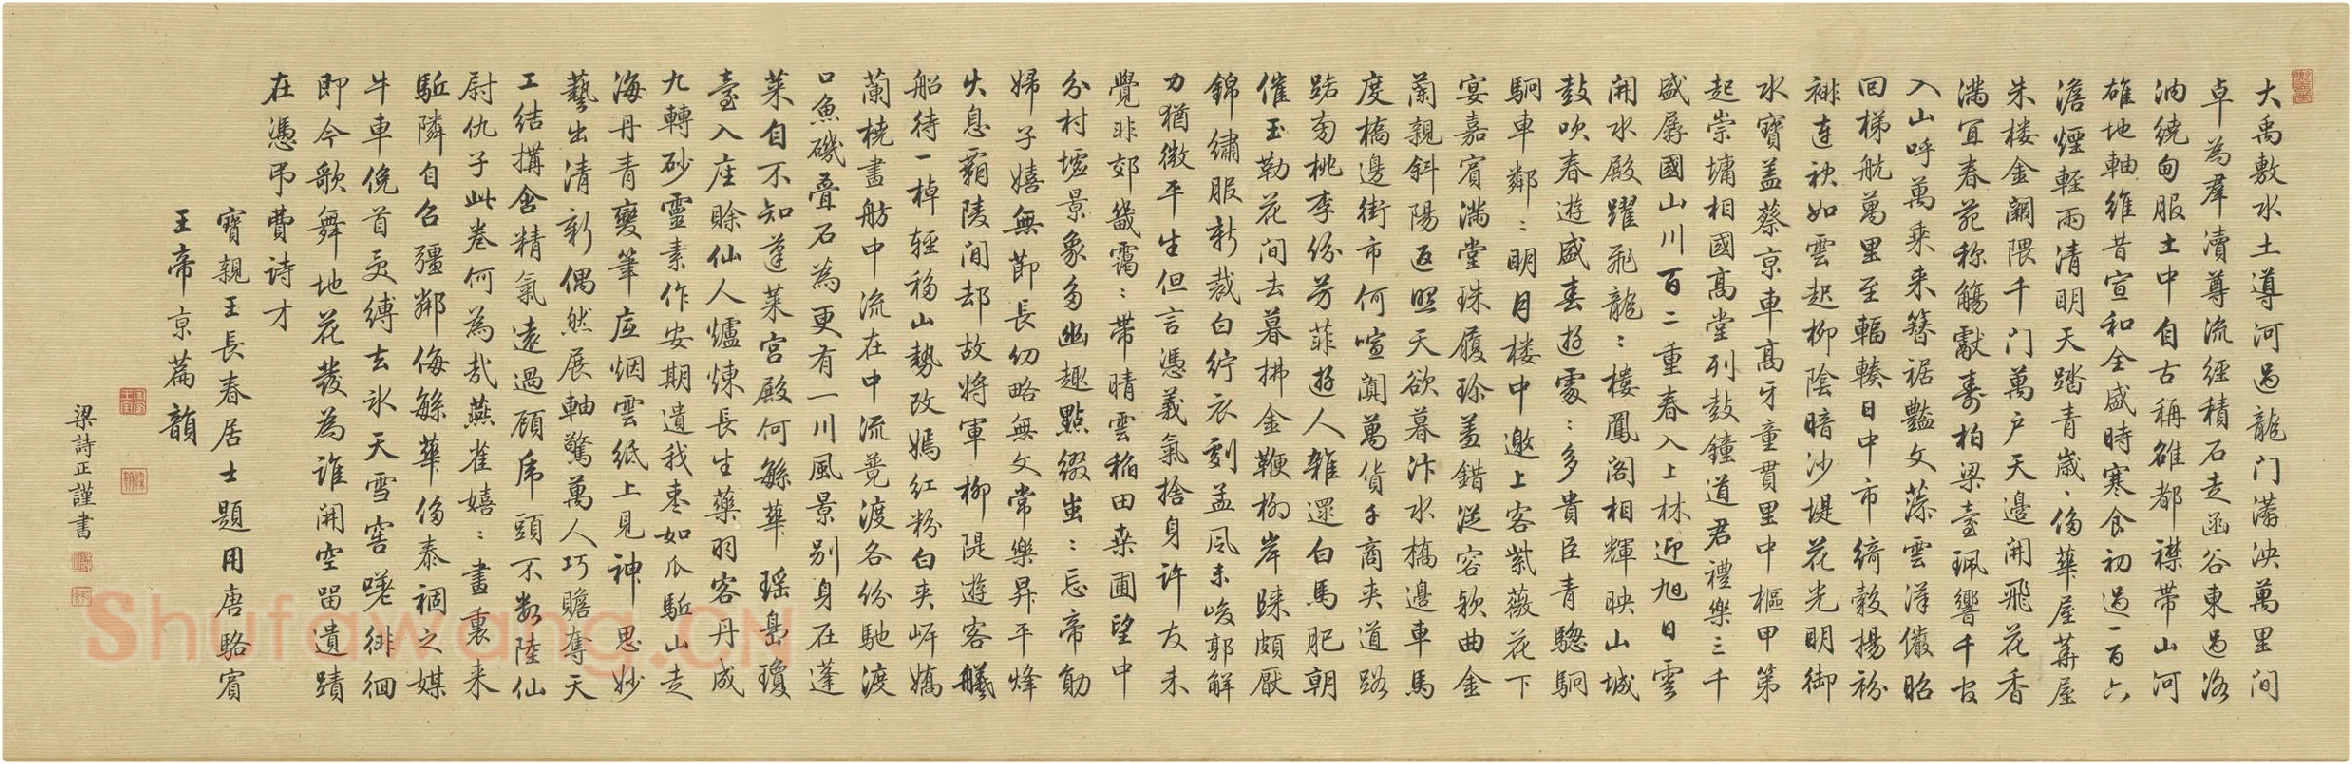 大禹敷水土導河過龍门潇泱萬里间
卓為羣瀆尊流經積石走函谷東過洛
汭繞甸服土中自古稱雄都襟带山河
雄地軸維昔宣和全盛時寒食初過一百六
澹煙輕雨清明天踏青歲〻侈華屋華屋
朱楼金闕隈千门萬户天邊開飛花香
滿宜春苑称觴獻壽柏梁臺珮響千官
入山呼萬乘来簪裾豔文藻雲漢儼昭
回梯航萬里至輻輳日中市綺縠揚衯
裶連袂如雲起柳陰暗沙堤花光明御
水寶盖蔡京車高牙童貫里中樞甲第
起崇墉相國高堂列鼓鐘道君禮樂三千
盛孱國山川百二重春入上林迎旭日雲
開水殿躍飛龍〻樓鳳阁相輝映山城
鼓吹春遊盛春遊處〻多貴臣青驄駉
駉車鄰〻明月楼中邀上客紫薇花下
宴嘉賓滿堂珠履珍羞錯從容欵曲金
蘭親斜陽返照天欲暮汴水橋邊車馬
度橋邊街市何喧闐萬貨千商夹道路
踮南桃李纷芳菲遊人雜遝白馬肥朝
催玉勒花间去暮拂金鞭柳岸歸頗厭
錦繡服新裁白紵衣劇孟風未峻郭解
力猶微平生但言憑義氣捨身许友未
覺非郊畿靄〻带晴雲稲田桑圃望中
分村墟景象多幽趣點缀出〻忘帝勛
婦子嬉無節長幼略無文常樂昇平烽
火息霸陵间却故将軍柳隄遊客艤
船待一棹輕移山勢改嫣红粉白夹岍嬌
蘭橈畫舫中流在中流競渡各纷馳渡
口魚磯叠石為更有一川風景别身在蓬
莱自不知蓬莱宫殿何繁華瑶島瓊
臺入座賒仙人爐煉長生藥羽客丹成
九轉砂靈素作安期遺我枣如瓜驱山走
海丹青變筆底烟雲纸上見神思妙
藝出清新偶然展軸驚萬人巧贍奪天
工结搆含精氣遠過顾虎頭不数陸仙
尉仇子此卷何為哉燕雀嬉〻畫裏来
驱隣自召彊鄰侮繁華侈泰禍之媒
牛車俛首就縛去氷天雪窖嘆徘徊
即今歌舞地花發為誰開空留遺蹟
在憑弔費诗才
寶親王長春居士題用唐駱賓
王帝京篇韻
梁詩正謹書
Shufawang.CN